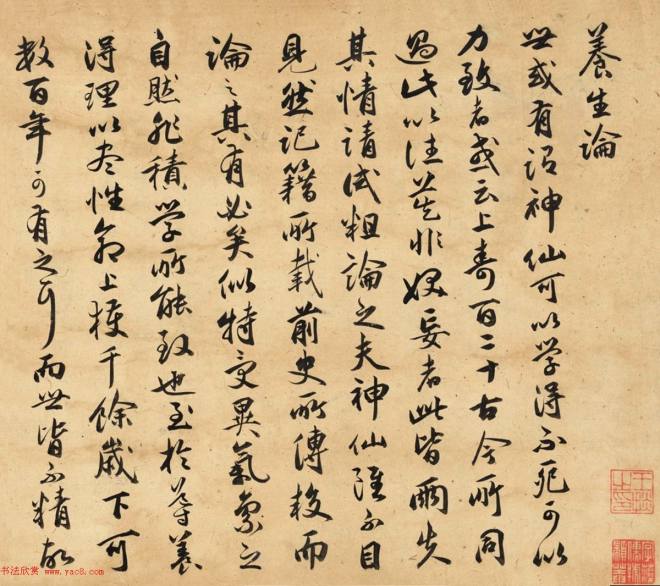 養生論
世或有謂神仙可以学得不死可以
力致者或云上寿百二十古今所同
過此以往莫非妖妄者此皆兩失
其情請試粗論之夫神仙雖不目
見然記籍所載前史所傳較而
論之其有必矣似特受異氣稟之
自然非積学所能致也至於導養
得理以尽性命上獲千餘歲下可
數百年可有之耳而世皆不精故
书法欣赏 www.yac8.com